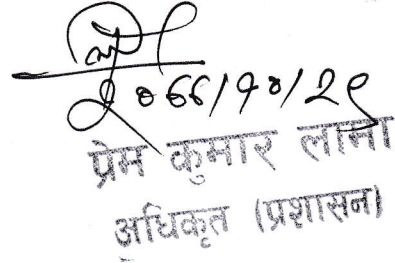 २०६६/१०/२९
प्रेम कुमार लामा
अधिकृत (प्रशासन)